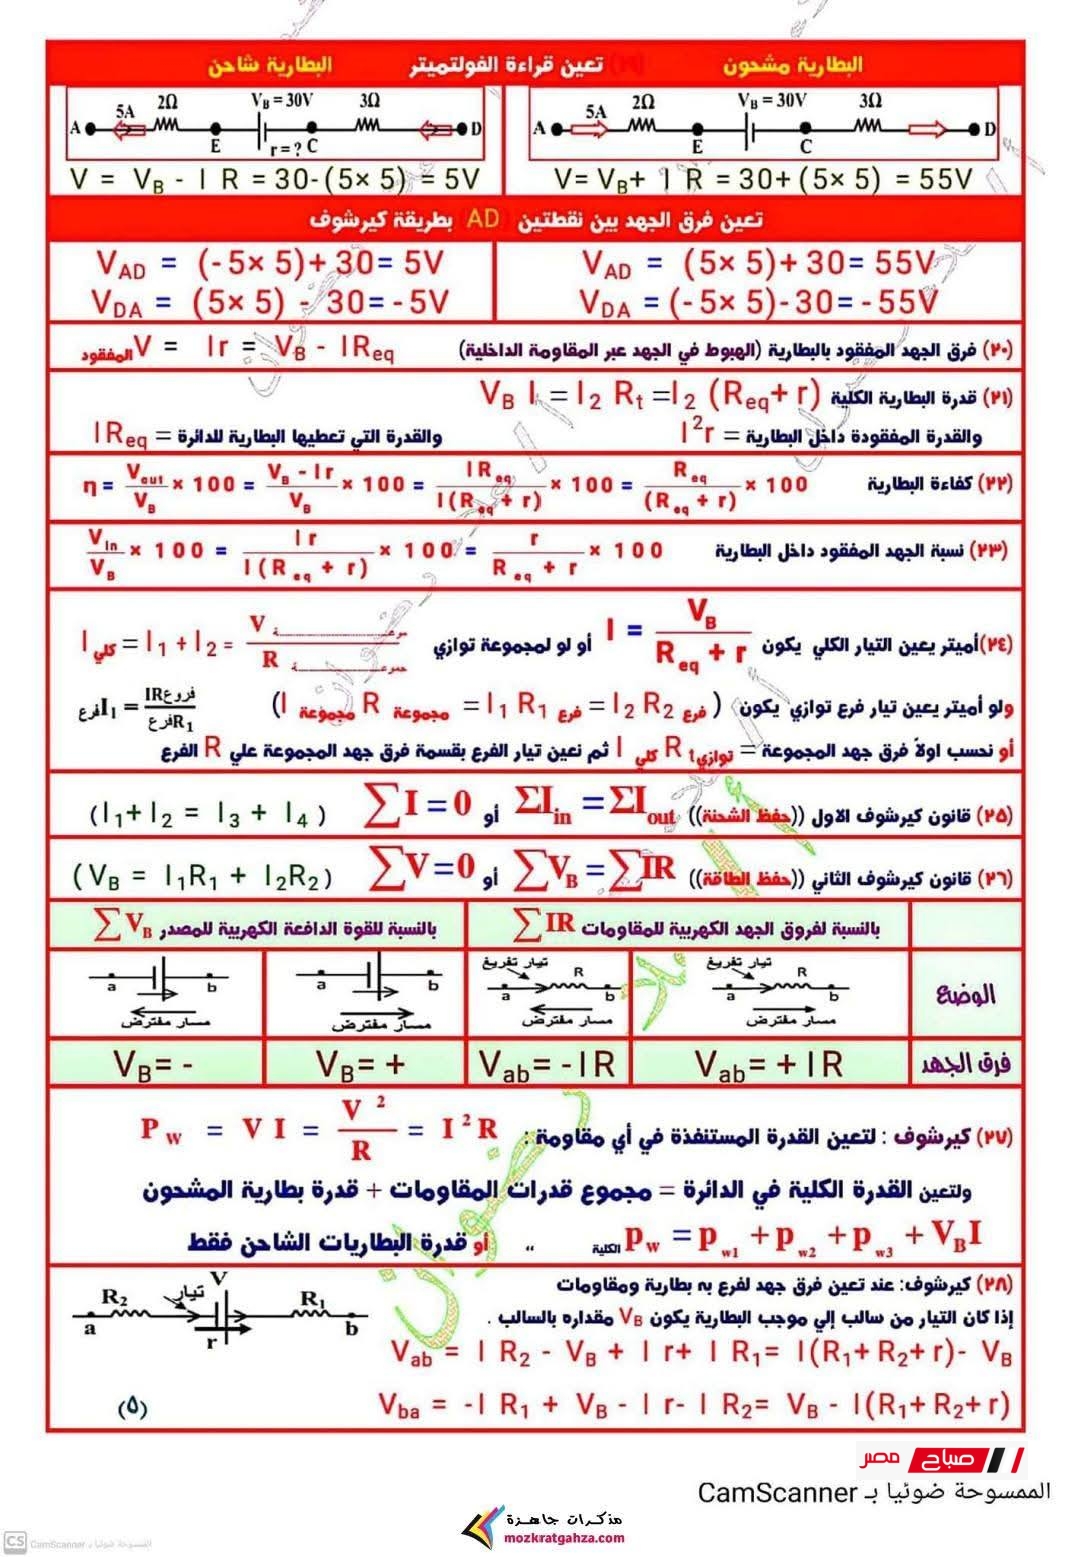 البطارية مشحون
تعين قراءة الفولتميتر
البطارية شاحن
A 5A 2Ω E V_B = 30V C 3Ω D
V= V_B+ I R = 30+ (5× 5) = 55V
A 5A 2Ω E V_B = 30V r = ? C 3Ω D
V = V_B - I R = 30-(5× 5) = 5V
تعين فرق الجهد بين نقطتين (AD) بطريقة كيرشوف
V_AD = (5× 5)+ 30= 55V
V_DA = (- 5× 5)- 30= - 55V
V_AD = (- 5× 5)+ 30= 5V
V_DA = (5× 5) - 30= - 5V
(٢٠) فرق الجهد المفقود بالبطارية (الهبوط في الجهد عبر المقاومة الداخلية) V المفقود = Ir = V_B - IR_eq
(٢١) قدرة البطارية الكلية V_B I = I_2 R_t =I_2 (R_eq+ r)
والقدرة المفقودة داخل البطارية = I²r والقدرة التي تعطيها البطارية للدائرة = IR_eq
(٢٢) كفاءة البطارية η = V_out/V_B × 100 = (V_B - Ir)/V_B × 100 = I R_eq/I(R_eq + r) × 100 = R_eq/(R_eq + r) × 100
(٢٣) نسبة الجهد المفقود داخل البطارية V_in/V_B × 100 = I r/I(R_eq + r) × 100 = r/(R_eq + r) × 100
(٢٤)أميتر يعين التيار الكلي يكون I = V_B/(R_eq + r) أو لو لمجموعة توازي I كلي = I_1 + I_2 = V/R
ولو أميتر يعين تيار فرع توازي يكون (I مجموعة R مجموعة = I_1 R_1 فرع = I_2 R_2 فرع) I_1فرع = IRفروع/R_1فرع
أو نحسب اولاً فرق جهد المجموعة = I كلي R توازي ثم نعين تيار الفرع بقسمة فرق جهد المجموعة علي R الفرع
(٢٥) قانون كيرشوف الاول ((حفظ الشحنة)) ΣI_in = ΣI_out أو ∑I = 0 (I_1+ I_2 = I_3 + I_4)
(٢٦) قانون كيرشوف الثاني ((حفظ الطاقة)) ∑V_B = ∑IR أو ∑V=0 (V_B = I_1R_1 + I_2R_2)
بالنسبة لفروق الجهد الكهربية للمقاومات ∑IR
بالنسبة للقوة الدافعة الكهربية للمصدر ∑V_B
الوضع
تيار تفريغ R a b مسار مفترض
تيار تفريغ R a b مسار مفترض
a b مسار مفترض
a b مسار مفترض
فرق الجهد
V_ab= + IR
V_ab= - IR
V_B= +
V_B= -
(٢٧) كيرشوف : لتعين القدرة المستنفذة في أي مقاومة : P_w = V I = V²/R = I²R
ولتعين القدرة الكلية في الدائرة = مجموع قدرات المقاومات + قدرة بطارية المشحون
p_w الكلية = p_w1 + p_w2 + p_w3 + V_BI ,, أو قدرة البطاريات الشاحن فقط
(٢٨) كيرشوف: عند تعين فرق جهد لفرع به بطارية ومقاومات
إذا كان التيار من سالب إلي موجب البطارية يكون V_B مقداره بالسالب .
a R_2 تيار V r R_1 b
V_ab = I R_2 - V_B + I r+ I R_1= I(R_1+ R_2+ r)- V_B
V_ba = -I R_1 + V_B - I r- I R_2= V_B - I(R_1+ R_2+ r)
(٥)
صباح مصر
الممسوحة ضوئيا بـ CamScanner
مذكرات جاهزة
mozkratgahza.com
CS CamScanner الممسوحة ضوئيا بـ